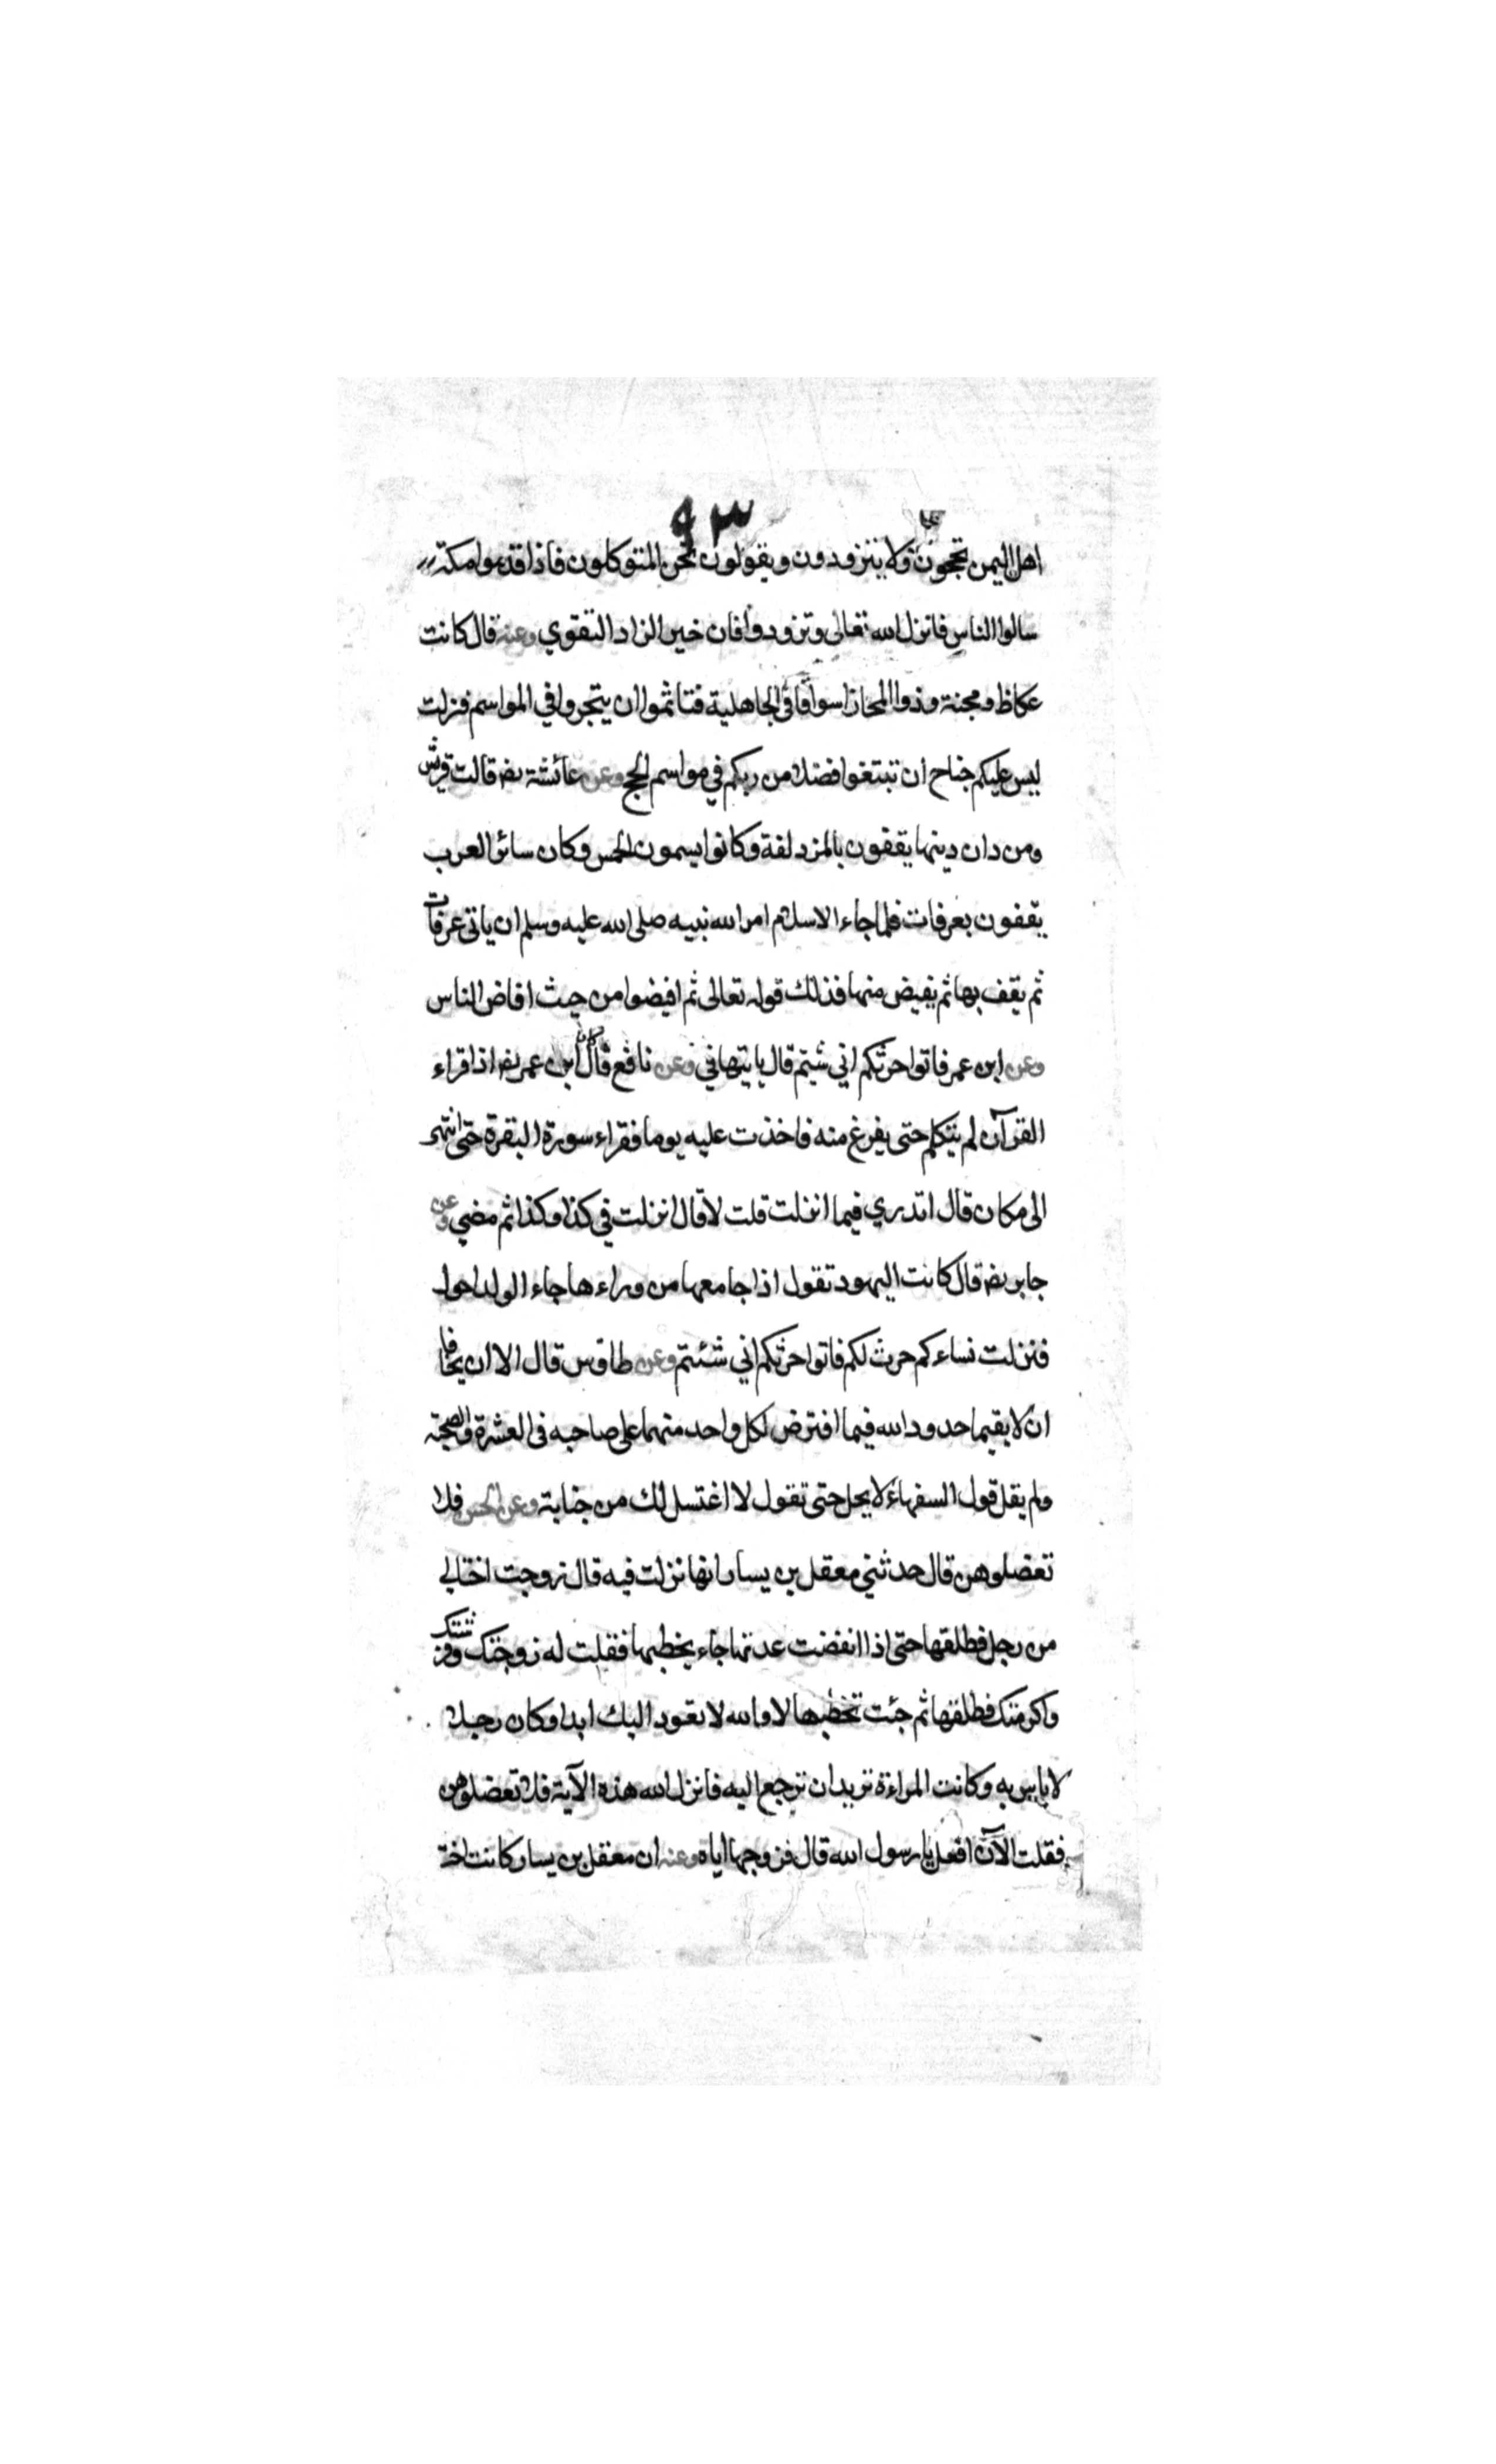 ٩٣
اهل اليمن يحجون ولا يتزودون ويقولون نحن المتوكلون فاذا قدموا مكة
سالوا الناس فانزل الله تعالى وتزودوا فان خير الزاد التقوي وعنه قال كانت
عكاظ ومجنة وذوا المجاز اسواقا في الجاهلية فتاثموا ان يتجروا في المواسم فنزلت
ليس عليكم جناح ان تبتغوا فضلا من ربكم في مواسم الحج وعن عائشة رض قالت قريش
ومن دان دينها يقفون بالمزدلفة وكانوا يسمون الحمس وكان سائر العرب
يقفون بعرفات فلما جاء الاسلام امر الله نبيه صلى الله عليه وسلم ان ياتي عرفات
ثم يقف بها ثم يفيض منها فذلك قوله تعالى ثم افيضوا من حيث افاض الناس
وعن ابن عمر فاتوا حرثكم اني شيتم قال ياتيها في وعن نافع قال كان ابن عمر رض اذا قراء
القرآن لم يتكلم حتى يفرغ منه فاخذت عليه يوما فقراء سورة البقرة حتى انتهى
الى مكان قال اتدري فيما انزلت قلت لا قال انزلت في كذا وكذا ثم مضي وعن
جابر رض قال كانت اليهود تقول اذا جامعها من وراءها جاء الولد احول
فنزلت نساءكم حرث لكم فاتوا حرثكم اني شئتم وعن طاوس قال الا ان يخافا
ان لا يقيما حدود الله فيما افترض لكل واحد منهما على صاحبه في العشرة والصحبة
ولم يقل قول السفهاء لا يحل حتى تقول لا اغتسل لك من جنابة وعن الحسن فلا
تعضلوهن قال حدثني معقل بن يسار انها نزلت فيه قال زوجت اختا لي
من رجل فطلقها حتى اذا انقضت عدتها جاء يخطبها فقلت له زوجتك وفرشتك
واكرمتك فطلقتها ثم جئت تخطبها لا والله لا تعود اليك ابدا وكان رجلا
لا باس به وكانت المراءة تريد ان ترجع اليه فانزل الله هذه الآية فلا تعضلوهن
فقلت الآن افعل يا رسول الله قال فزوجها اياه وعنه ان معقل بن يسار كانت اخته